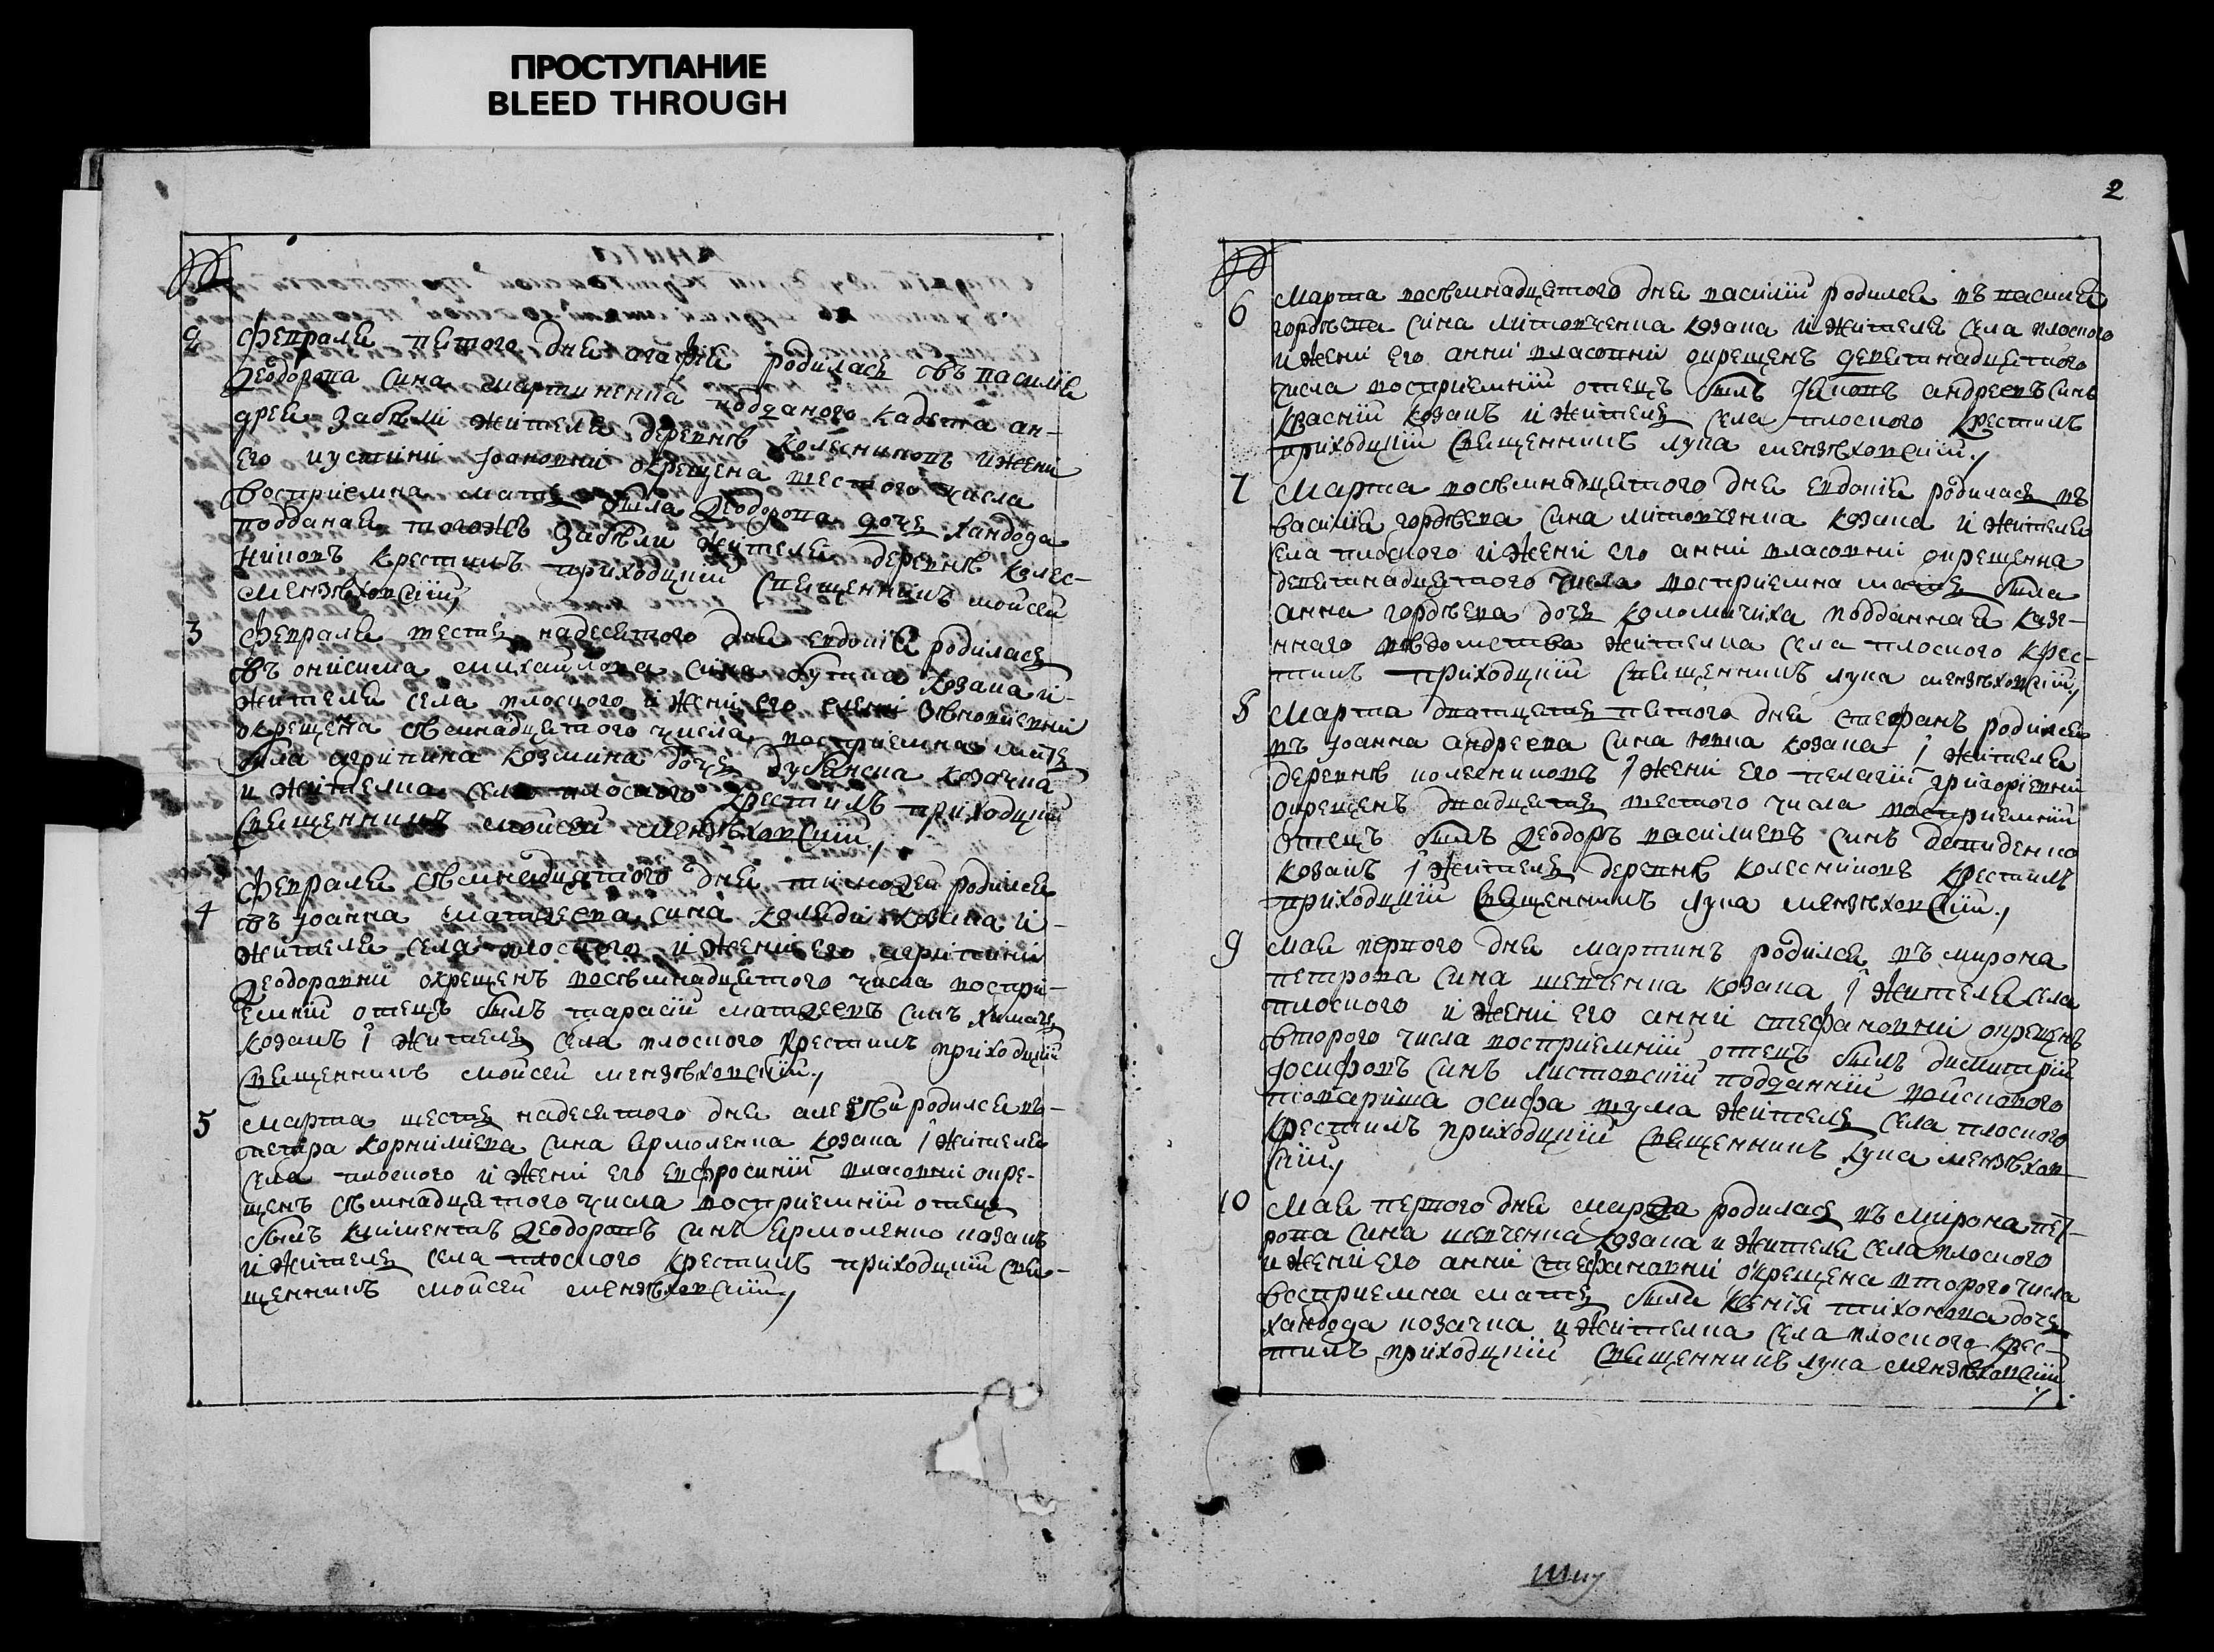 ПРОСТУПАНИЕ
BLEED THROUGH
2
2 Февраля пятого дня агафия родилась въ василия
Ѳеодорова сина мартиненка подданого кадета ан-
дрея забѣли жителя деревнѣ колесниковъ и жени
его иустини Іоановни окрещена шестого числа
восприемна матѣ била Ѳеодорова дочѣ хандода
подданая тогожъ забѣли жителя деревнѣ колес-
никовъ крестилъ приходцкій священникъ мойсей
мензѣховский
3 Февраля шестъ надесятого дня евдокіа родиласѣ
въ онисима михайлова сина бутка козака и
жителя села плоского и жени его елени
окрещена сѣмнадцятого числа восприемна матѣ
била агрипина козмина дочѣ козачка
и жителка села плоского крестилъ приходцкій
священникъ мойсей мензѣховскій
4 Февраля сѣмнадцятого дня тимоѳей родился
въ Іоанна матѳеева сина коляди козака и
жителя села плоского и жени его агрипини
Ѳеодоровни охрещенъ восѣмнадцятого числа воспри-
емній отецъ билъ тарасій матѳеевъ синъ химачъ
козакъ і жителѣ села плоского крестилъ приходцкій
священникъ мойсей мензѣховскій
5 Марта шестѣ надесятого дня алеѯѣй родился въ
петра корнилиева сина ермоленка козака і жителя
села плоского и жени его евфросинии власовни окре-
щенъ сѣмнадцятого числа восприемній отецъ
билъ климентъ Ѳеодоровъ синъ ермоленко козакъ
и жителѣ села плоского крестилъ приходцкій свя-
щенникъ мойсей мензѣховскій
6 Марта восѣмнадцятого дня василій родился въ василия
гордѣева сина литовченка козака и жителя села плоского
и жени его анни власовни окрещенъ девятнадцятого
числа восприемній отецъ билъ Іяковъ андреевъ синъ
козакъ и жителѣ села плоского крестилъ
приходцкій священникъ лука мензѣховскій
7 Марта восѣмнадцятого дня евдокіа родиласѣ въ
василия гордѣева сина литовченка козака и жителя
села плоского и жени его анни власовни окрещенна
девятнадцятого числа восприемна матѣ била
анна гордѣева дочѣ коломичиха подданная казе-
нного вѣдомства жителка села плоского крес-
тилъ приходцкій священникъ лука мензѣховскій
8 Марта двятцятѣ пятого дня стефанъ родился
въ Іоанна андреева сина юпка козака і жителя
деревнѣ колесниковъ і жени его пелагіи григоріевни
окрещенъ двадцятѣ шестого числа восприемній
отецъ билъ Ѳеодоръ василиевъ синъ демиденко
козакъ і жителѣ деревнѣ колесниковъ крестилъ
приходцкій священникъ лука мензѣховскій
9 Мая первого дня мартинъ родился въ мирона
петрова сина шевченка козака і жителя села
плоского и жени его анни стефановни окрещенъ
второго числа восприемній отецъ билъ димитрій
Іосифовъ синъ листовскій подданній войскового
товариша осифа тума жителѣ села плоского
крестилъ приходцкій священникъ лука мензѣхов-
скій
10 Мая первого дня марѳа родиласѣ въ мирона пет-
рова сина шевченка козака и жителя села плоского
и жени его анни стефановни окрещена второго числа
восприемна матѣ била ксенія тихонова дочѣ
хандода козачка и жителка села плоского крес-
тилъ приходцкій священникъ лука мензѣховскій